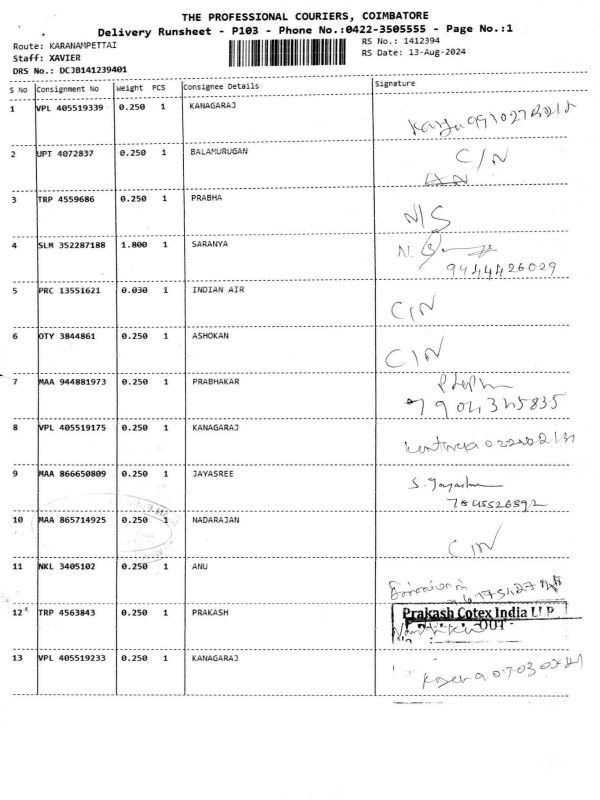 THE PROFESSIONAL COURIERS, COIMBATORE
Delivery Runsheet - P103 - Phone No.:0422-3505555 - Page No.:1
Route: KARANAMPETTAI
RS No.: 1412394
Staff: XAVIER
RS Date: 13-Aug-2024
DRS No.: DCJB141239401
S No Consignment No Weight PCS Consignee Details Signature
1 VPL 405519339 0.250 1 KANAGARAJ
2 UPT 4072837 0.250 1 BALAMURUGAN C/N
3 TRP 4559686 0.250 1 PRABHA N/S
4 SLM 352287188 1.800 1 SARANYA N.
9444426029
5 PRC 13551621 0.030 1 INDIAN AIR C/N
6 OTY 3844861 0.250 1 ASHOKAN C/N
7 MAA 944881973 0.250 1 PRABHAKAR
7904345835
8 VPL 405519175 0.250 1 KANAGARAJ
9 MAA 866650809 0.250 1 JAYASREE S.
10 MAA 865714925 0.250 1 NADARAJAN C/N
11 NKL 3405102 0.250 1 ANU
12 TRP 4563843 0.250 1 PRAKASH Prakash Cotex India LLP
OUT
13 VPL 405519233 0.250 1 KANAGARAJ